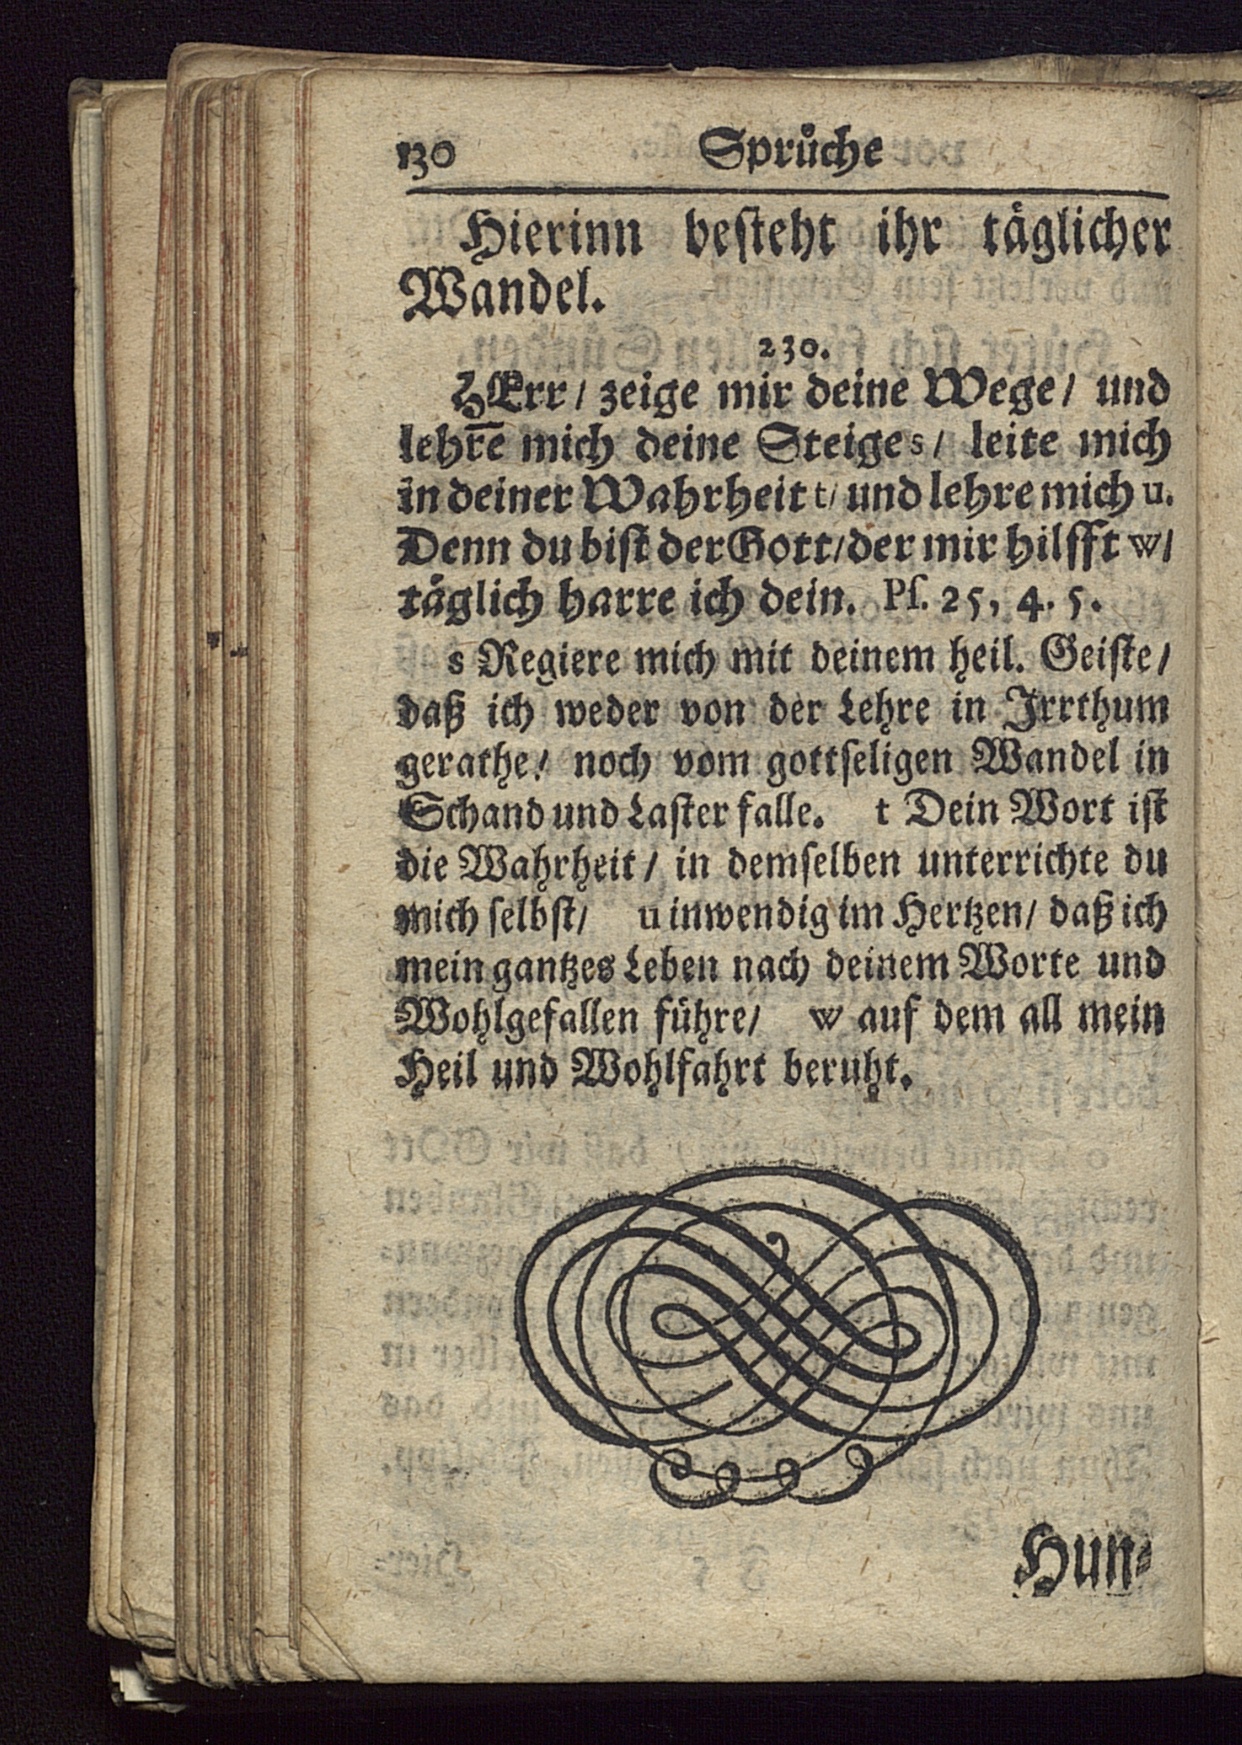 130 Sprüche
Hierinn besteht ihr täglicher
Wandel.
230.
HErr/ zeige mir deine Wege/ und
lehre mich deine Steige s/ leite mich
in deiner Wahrheit t/ und lehre mich u.
Denn du bist der Gott/ der mir hilfft w/
täglich harre ich dein. Ps. 25, 4. 5.
s Regiere mich mit deinem heil. Geiste/
daß ich weder von der Lehre in Irrthum
gerathe/ noch vom gottseligen Wandel in
Schand und Laster falle. t Dein Wort ist
die Wahrheit/ in demselben unterrichte du
mich selbst/ u inwendig im Hertzen/ daß ich
mein gantzes Leben nach deinem Worte und
Wohlgefallen führe/ w auf dem all mein
Heil und Wohlfahrt beruht.
Hun-